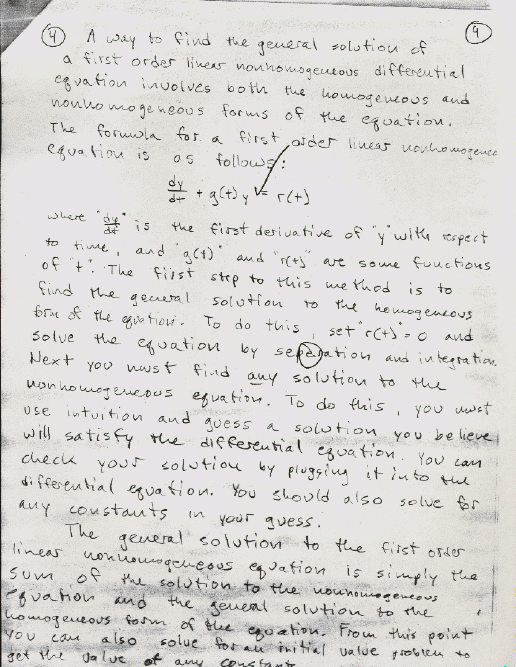 ④ A way to find the general solution of ④
a first order linear nonhomogeneous differential
equation involves both the homogeneous and
nonhomogeneous forms of the equation.
The formula for a first order linear nonhomogence
equation is as follows:
dy/dt + g(t)y = r(t)
where "dy/dt" is the first derivative of "y" with respect
to time, and "g(t)" and "r(t)" are some functions
of "t". The first step to this method is to
find the general solution to the homogeneous
form of the equation. To do this, set "r(t)" = 0 and
solve the equation by separation and integration.
Next you must find any solution to the
nonhomogeneous equation. To do this, you must
use intuition and guess a solution you believe
will satisfy the differential equation. You can
check your solution by plugging it into the
differential equation. You should also solve for
any constants in your guess.
The general solution to the first order
linear nonhomogeneous equation is simply the
sum of the solution to the nonhomogeneous
equation and the general solution to the
homogeneous form of the equation. From this point
you can also solve for an initial value problem to
get the value of any constant